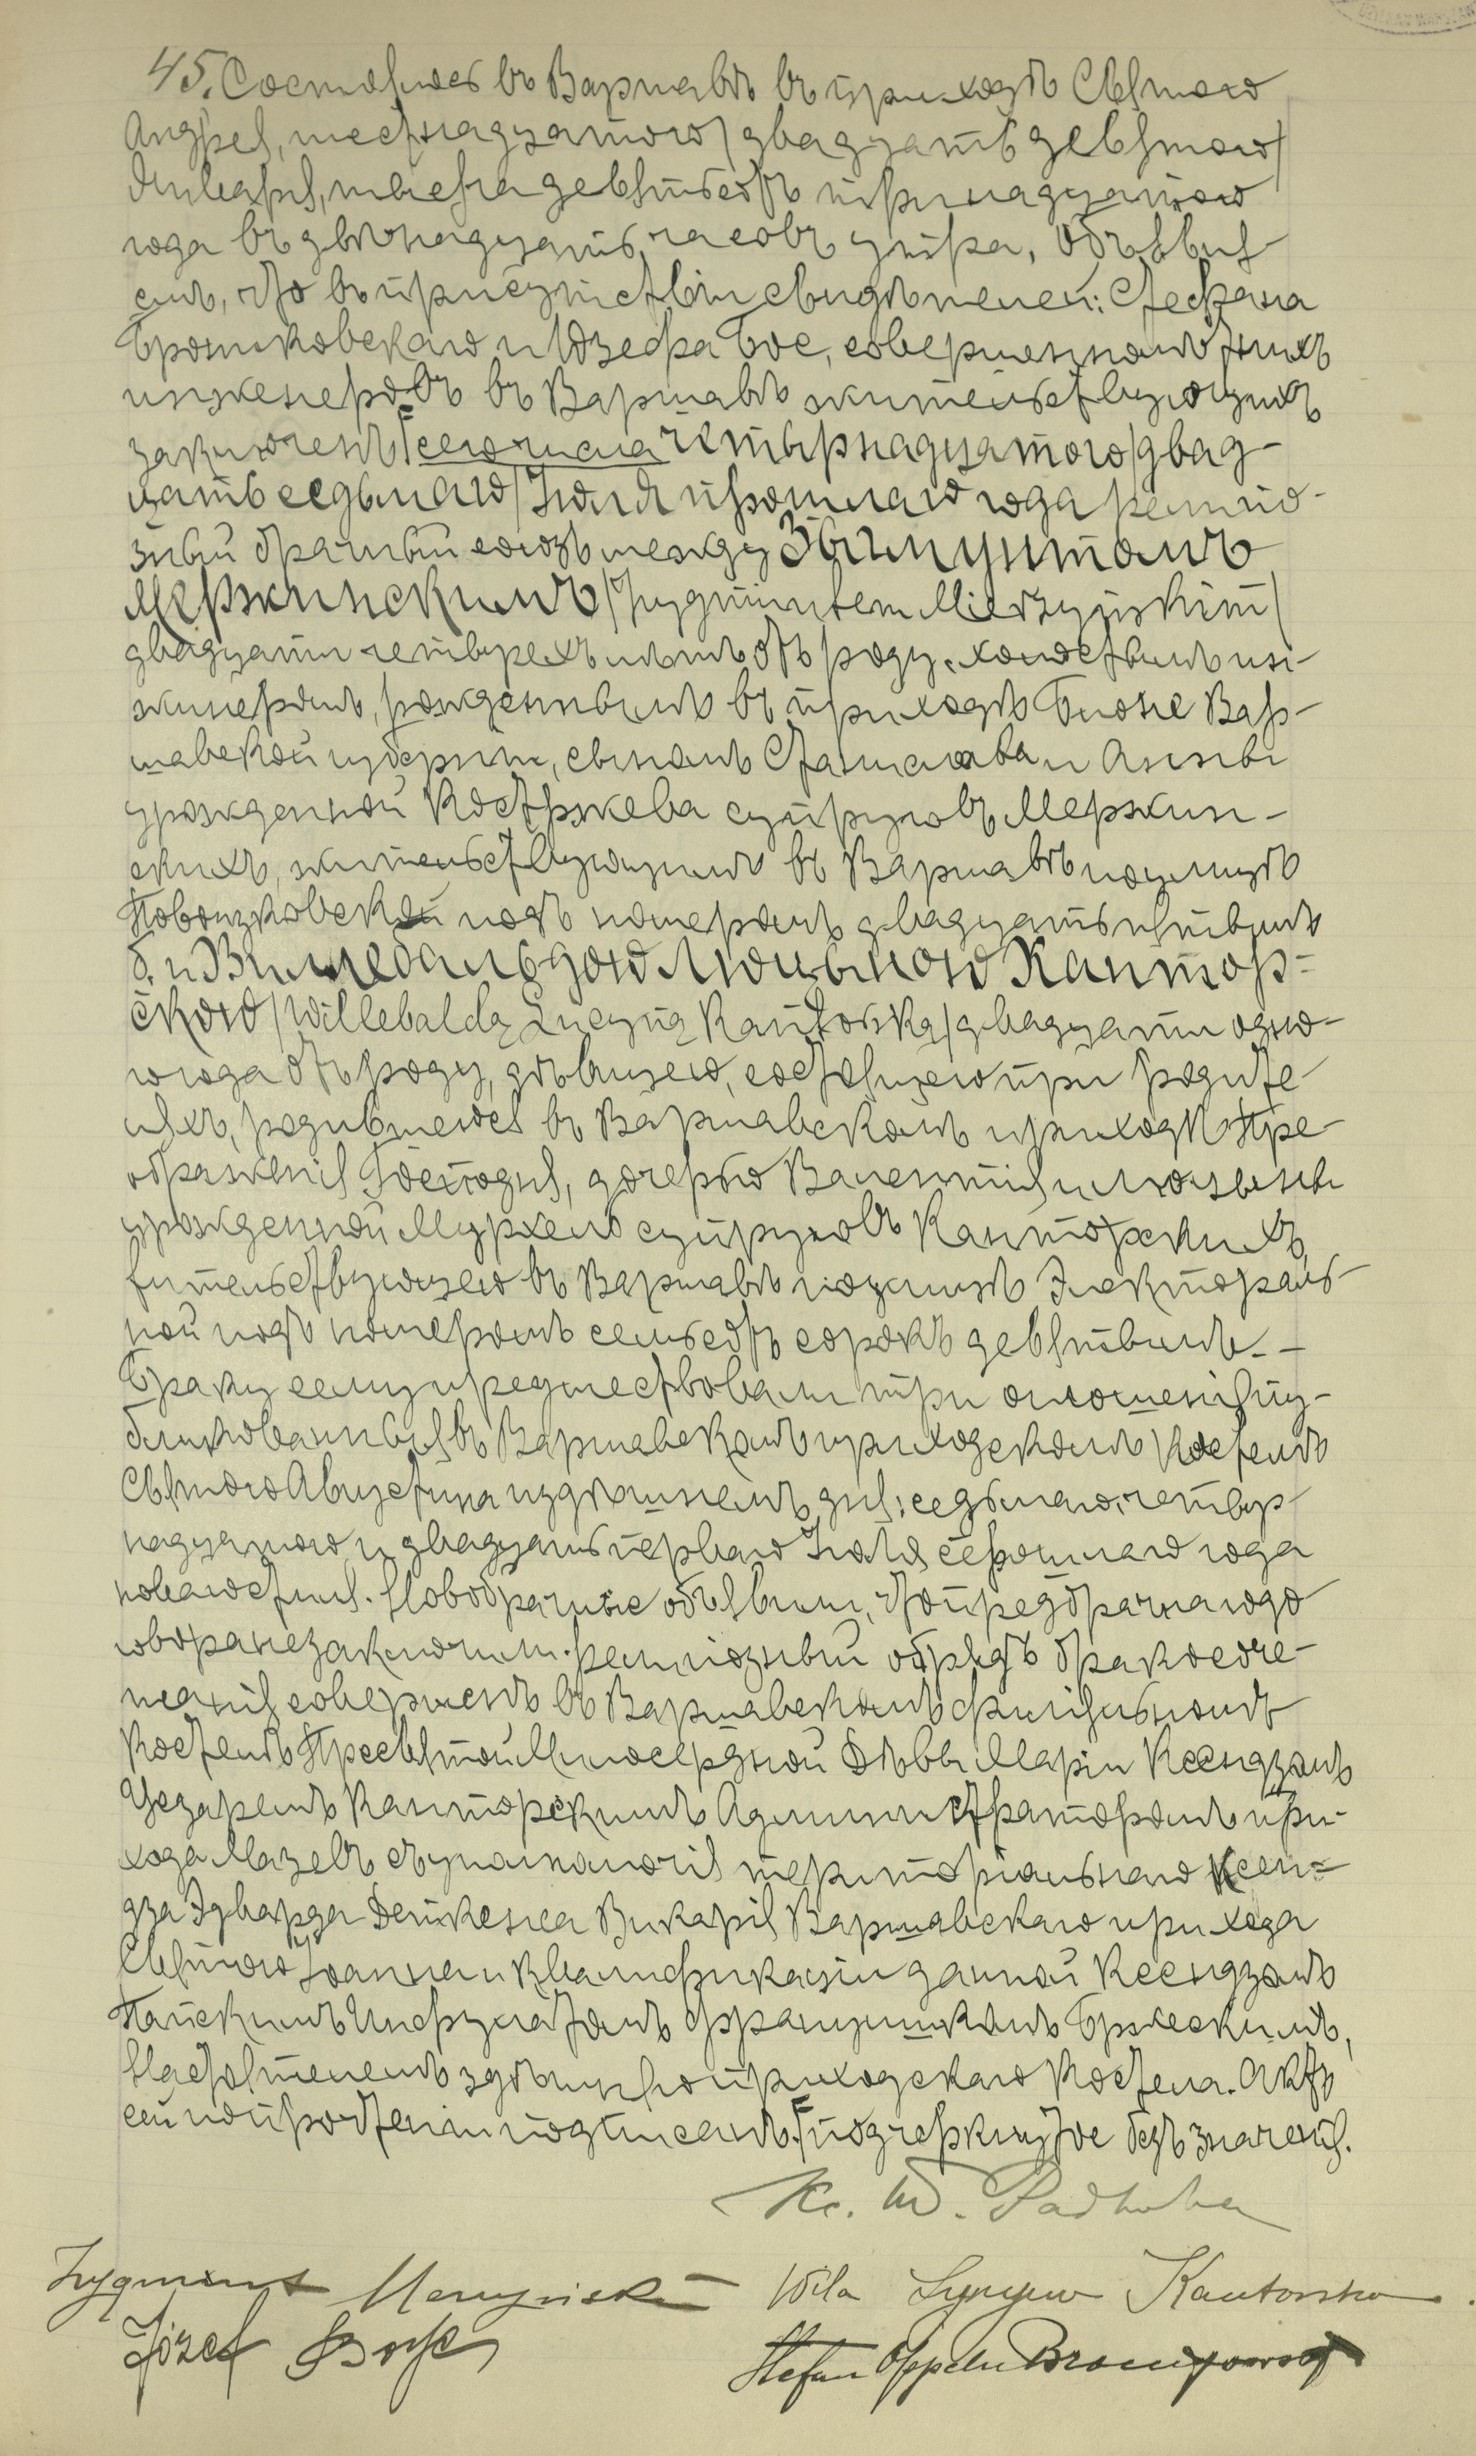 45. Состоялось въ Варшавѣ въ приходѣ Святого
Андрея, шестнадцатого /двадцать девятого/
Января, тысяча девятьсотъ тринадцатого
года въ двѣнадцать часовъ утра. Объявля-
емъ, что въ присутствіи свидѣтелей: Стефана
Брониковскаго и Юзефа Бос, совершеннолѣтнихъ
инженеровъ въ Варшавѣ жительствующихъ
заключенъ сего числа четырнадцатого /двад-
цать седьмаго/ Іюля прошлаго года религіо-
зный брачный союзъ между Зыгмунтомъ
Мержинскимъ /Zygmuntem Mierzyńskim/
двадцати четырехъ лѣтъ отъ роду, холостымъ ин-
жинеромъ, рожденнымъ въ приходѣ Блоне Вар-
шавской губерніи, сыномъ Станислава и Анны
урожденной Костржева супруговъ Мержин-
скихъ, жительствующимъ въ Варшавѣ по улицѣ
Повонзковской подъ номеромъ двадцать пятымъ
б. и Виллебальдою Люцыною Кантор-
скою /Willebaldą Lucyną Kantorską/ двадцати одно-
го года отъ роду, дѣвицею, состоящею при родите-
ляхъ, родившеюся въ Варшавскомъ приходѣ Пре-
ображенія Господня, дочерью Валентія и Люцыны
урожденной Мурхело супруговъ Канторскихъ,
жительствующею въ Варшавѣ по улицѣ Электораль-
ной подъ номеромъ семьсотъ сорокъ девятымъ.-
Браку сему предшествовали три оглашенія пу-
бликованныя въ Варшавскомъ приходскомъ Костелѣ
Святого Августина и здѣшнемъ дня: седьмаго, четыр-
надцатого и двадцать перваго Іюля прошлаго года
новаго стиля. Новобрачные объявили, что предбрачнаго до-
говора не заключили. религіозный обрядъ бракосоче-
танія совершенъ въ Варшавскомъ филіяльномъ
Костелѣ Пресвятой Милосердной Дѣвы Маріи Ксендзомъ
Цезаремъ Канторскимъ Администраторомъ при-
хода Мазевъ съ уполномочія територіальнаго Ксен-
дза Эдварда Деткенса Викарія Варшавскаго прихода
Святого Іоанна и квалификаціи данной Ксендзомъ
Папскимъ Инфулатомъ Францишкомъ Бржескимъ,
Настоятелемъ здѣшняго приходскаго Костела. Актъ
сей по прочтеніи подписанъ. подчеркнутое безъ значенія.
Кс. W.
Zygmunt Mierzyński Wila Lucyna Kantorska.
Józef
Stefan Oppeln Bronikowski